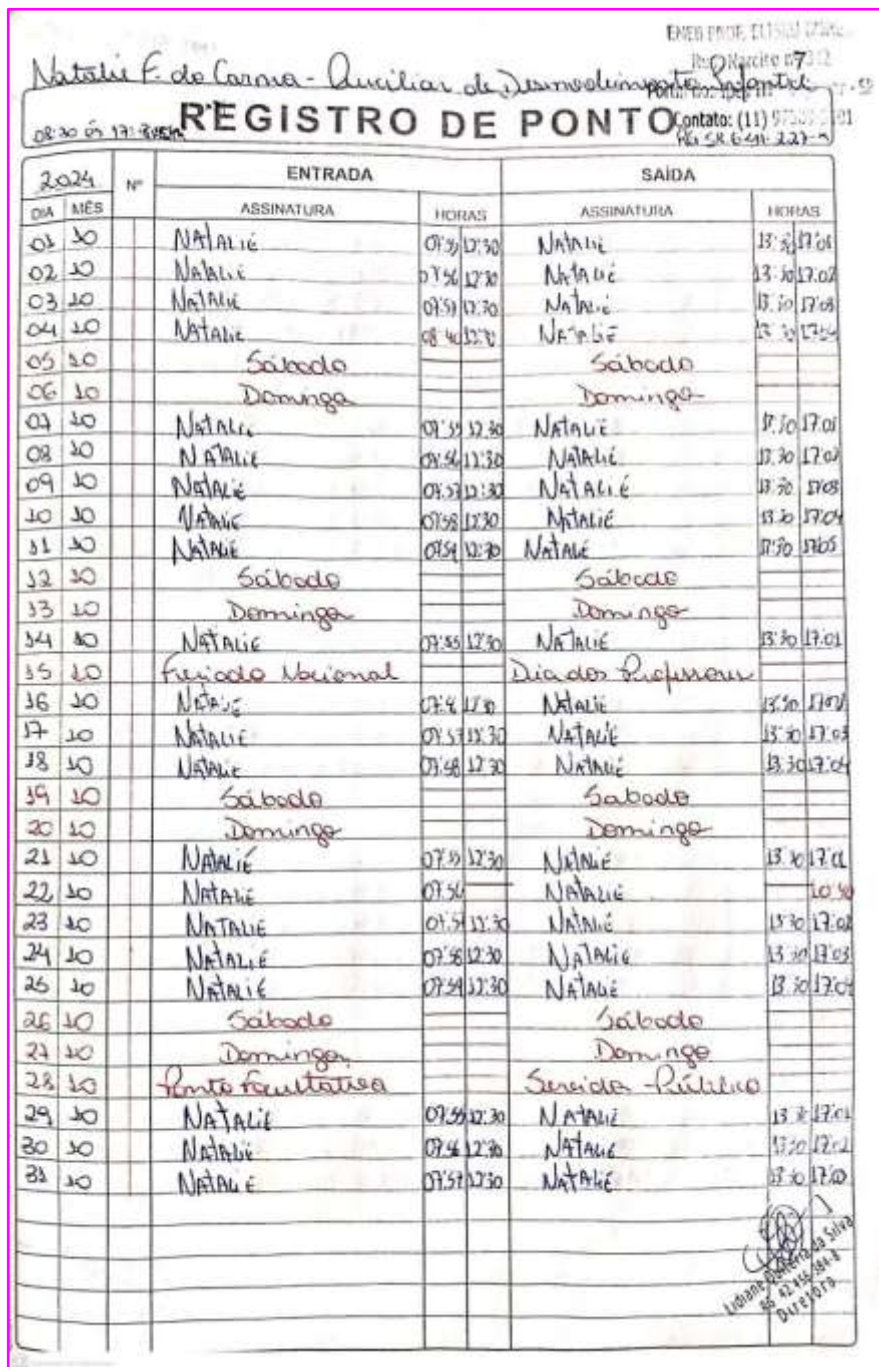 Natalie F. do Carmo - Auxiliar de Desenvolvimento Infantil
REGISTRO DE PONTO
Contato: (11)
2024 Nº ENTRADA SAÍDA
DIA MÊS ASSINATURA HORAS ASSINATURA HORAS
01 10 NATALIÉ 12:30 NATALIÉ 17:01
02 10 NATALIÉ 07:56 12:30 NATALIÉ 13:30 17:02
03 10 NATALIÉ 07:57 12:30 NATALIÉ 13:30 17:03
04 10 NATALIÉ 08:40 NATALIÉ 13:30 17:04
05 10 Sábado Sábado
06 10 Domingo Domingo
07 10 NATALIÉ 07:55 12:30 NATALIÉ 17:01
08 10 NATALIÉ 07:56 12:30 NATALIÉ 13:30 17:02
09 10 NATALIÉ 07:57 12:30 NATALIÉ 13:30 17:03
10 10 NATALIÉ 07:58 12:30 NATALIÉ 13:30 17:04
11 10 NATALIÉ 07:59 12:30 NATALIÉ 17:05
12 10 Sábado Sábado
13 10 Domingo Domingo
14 10 NATALIÉ 07:55 12:30 NATALIÉ 13:30 17:01
15 10 Feriado Nacional Dia dos Professores
16 10 NATALIÉ NATALIÉ 13:30 17:02
17 10 NATALIÉ 07:57 12:30 NATALIÉ 13:30 17:03
18 10 NATALIÉ 07:58 12:30 NATALIÉ 13:30 17:04
19 10 Sábado Sabado
20 10 Domingo Domingo
21 10 NATALIÉ 07:55 12:30 NATALIÉ 13:30 17:01
22 10 NATALIÉ 07:56 NATALIÉ
23 10 NATALIÉ 07:57 12:30 NATALIÉ 13:30 17:02
24 10 NATALIÉ 07:58 12:30 NATALIÉ 13:30 17:03
25 10 NATALIÉ 07:59 12:30 NATALIÉ 13:30 17:04
26 10 Sábado Sábado
27 10 Domingo Domingo
28 10 Ponto Facultativo Público
29 10 NATALIÉ 07:55 12:30 NATALIÉ 13:30 17:01
30 10 NATALIÉ 07:56 12:30 NATALIÉ 13:30 17:02
31 10 NATALIÉ 07:57 12:30 NATALIÉ 13:30
Lidiane da Silva
Diretora